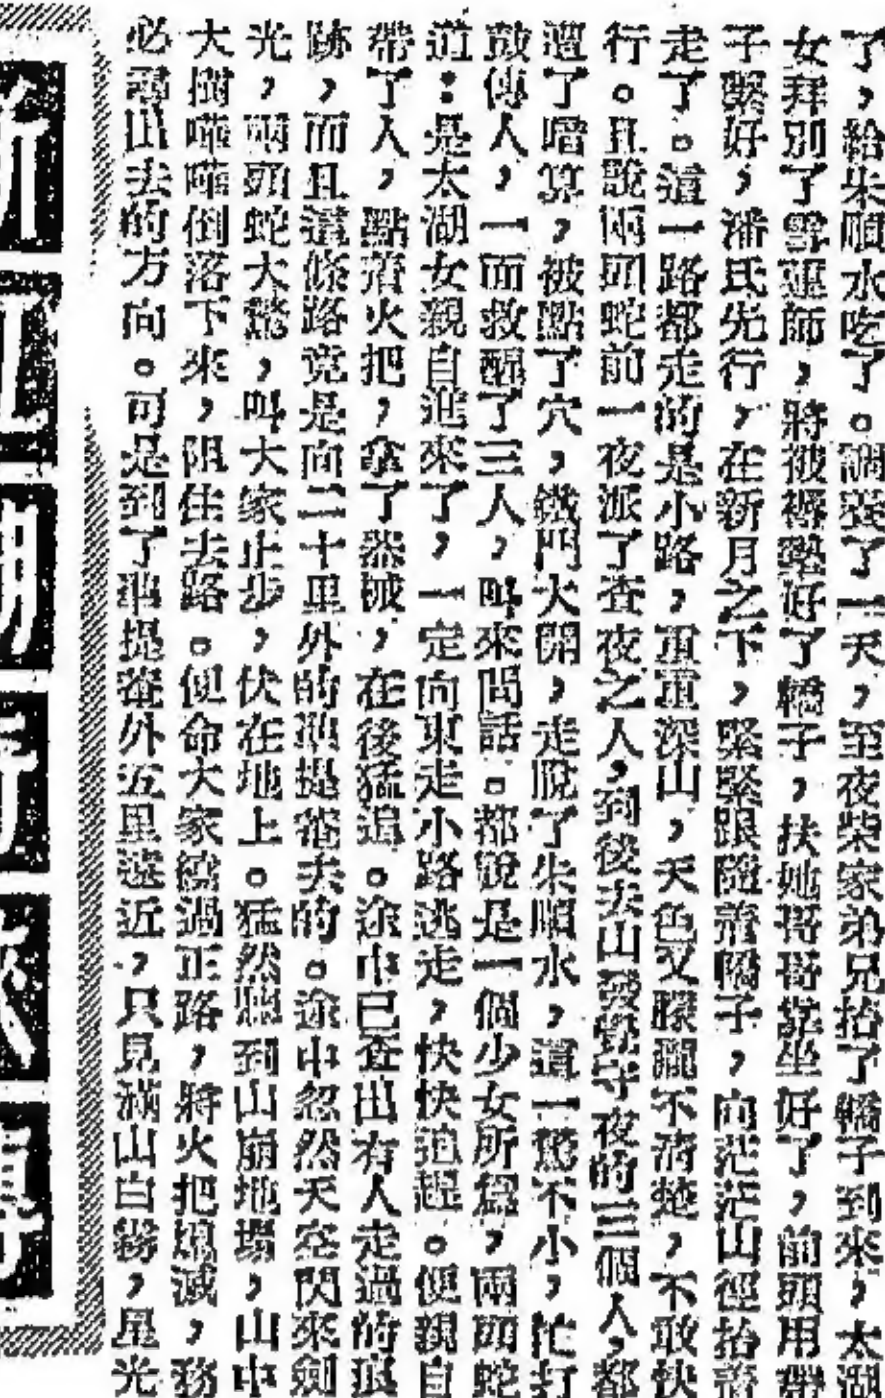 了，給朱順水吃了。調養了一天，至夜柴家弟兄抬了轎子到來，太湖
女拜別了雪蓮師，將被褥墊好了轎子，扶她哥哥靠坐好了，前頭用帶
子繫好，潘氏先行，在新月之下，緊緊跟隨着轎子，向茫茫山徑抬着
走了。這一路都走的是小路，重重深山，天色又朦朧不清楚，不敢快
行。且說兩頭蛇前一夜派了查夜之人，到後去山發覺守夜的三個人，都
遭了暗算，被點了穴，鐵門大開，走脫了朱順水，這一驚不小，忙打
鼓傳人，一面救醒了三人，叫來問話。都說是一個少女所為，兩頭蛇
道：是太湖女親自進來了，一定向東走小路逃走，快快追趕。便親自
帶了人，點着火把，拿了器械，在後猛追。途中已查出有人走過的痕
跡，而且這條路竟是向二十里外的準提菴去的。途中忽然天空閃來劍
光，兩頭蛇大驚，叫大家止步，伏在地上。猛然聽到山崩地塌，山中
大樹嘩嘩倒落下來，阻住去路。便命大家繞過正路，將火把熄滅，務
必尋出去的方向。可是到了準提菴外五里遠近，只見滿山白霧，星光